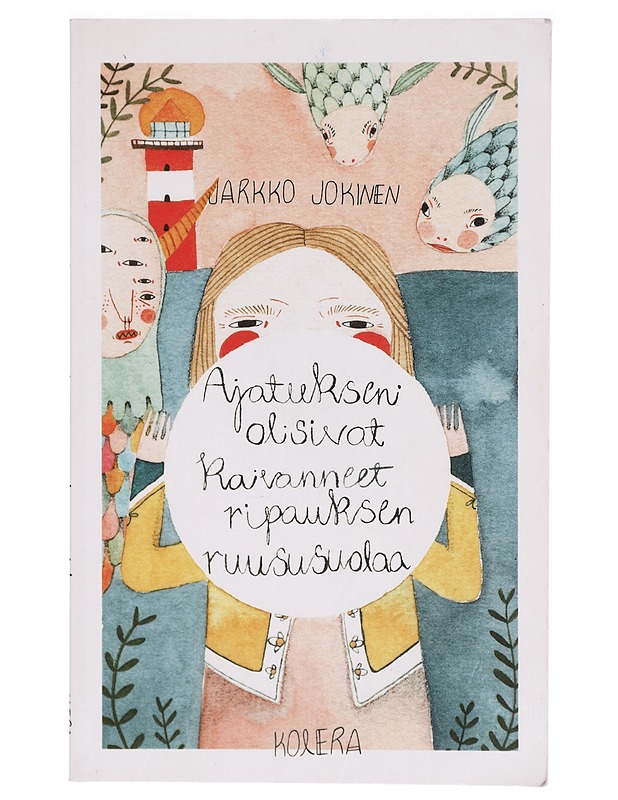 JARKKO JOKINEN
Ajatukseni
olisivat
kaivanneet
ripauksen
ruususuolaa
KOLERA